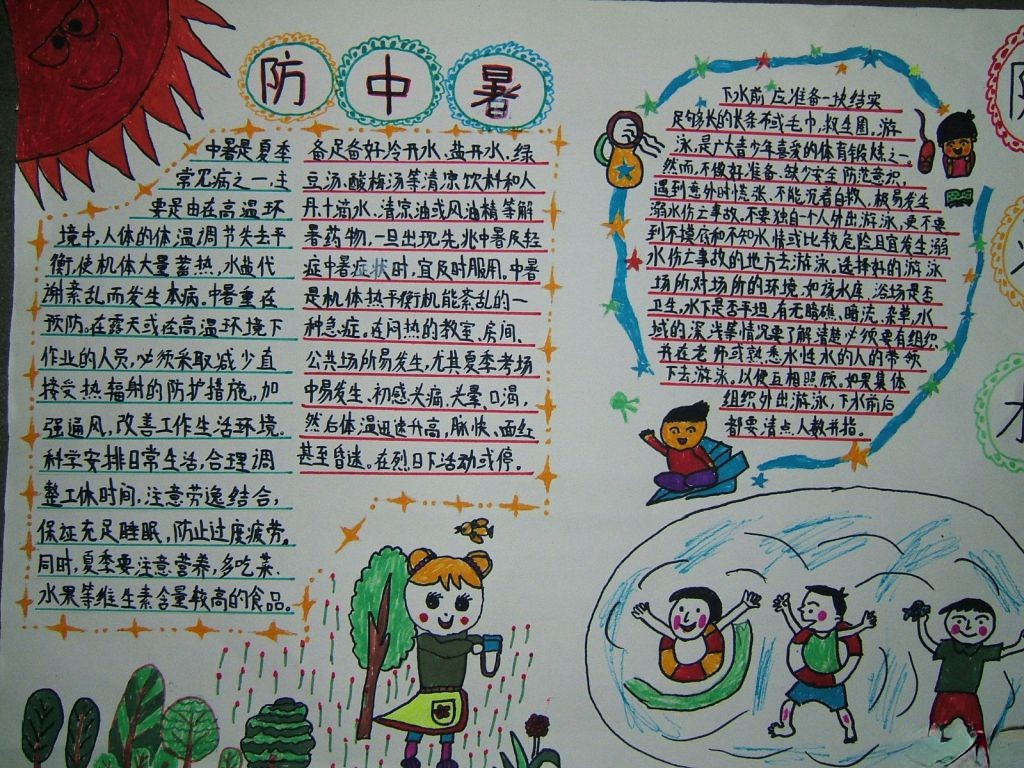 防中暑
中暑是夏季
常见病之一,主
要是由在高温环
境中,人体的体温调节失去平
衡,使机体大量蓄热,水盐代
谢紊乱而发生本病。中暑重在
预防。在露天或在高温环境下
作业的人员,必须采取减少直
接受热辐射的防护措施,加
强通风,改善工作生活环境。
科学安排日常生活,合理调
整工休时间,注意劳逸结合,
保证充足睡眠,防止过度疲劳。
同时,夏季要注意营养,多吃菜、
水果等维生素含量较高的食品。
备足备好冷开水、盐开水、绿
豆汤、酸梅汤等清凉饮料和人
丹、十滴水、清凉油或风油精等解
暑药物,一旦出现先兆中暑及轻
症中暑症状时,宜及时服用。中暑
是机体热平衡机能紊乱的一
种急症。在闷热的教室、房间、
公共场所易发生,尤其夏季考场
中易发生、初感头痛、头晕、口渴,
然后体温迅速升高,脉快、面红
甚至昏迷。在烈日下活动或停。
下水前应准备一块结实
足够长的长条布或毛巾,救生圈,游
泳,是广大青少年喜爱的体育锻炼之一。
然而,不做好准备、缺少安全防范意识,
遇到意外时慌张、不能沉着自救,极易发生
溺水伤亡事故。不要独自一个人外出游泳,更不要
到不摸底和不知水情或比较危险且宜发生溺
水伤亡事故的地方去游泳。选择好的游泳
场所,对场所的环境,如该水库、浴场是否
卫生,水下是否平坦,有无暗礁、暗流、杂草,水
域的深浅等情况要了解清楚。必须要有组织
并在老师或熟悉水性水的人的带领
下去游泳。以便互相照顾。如果集体
组织外出游泳,下水前后
都要清点人数并指。